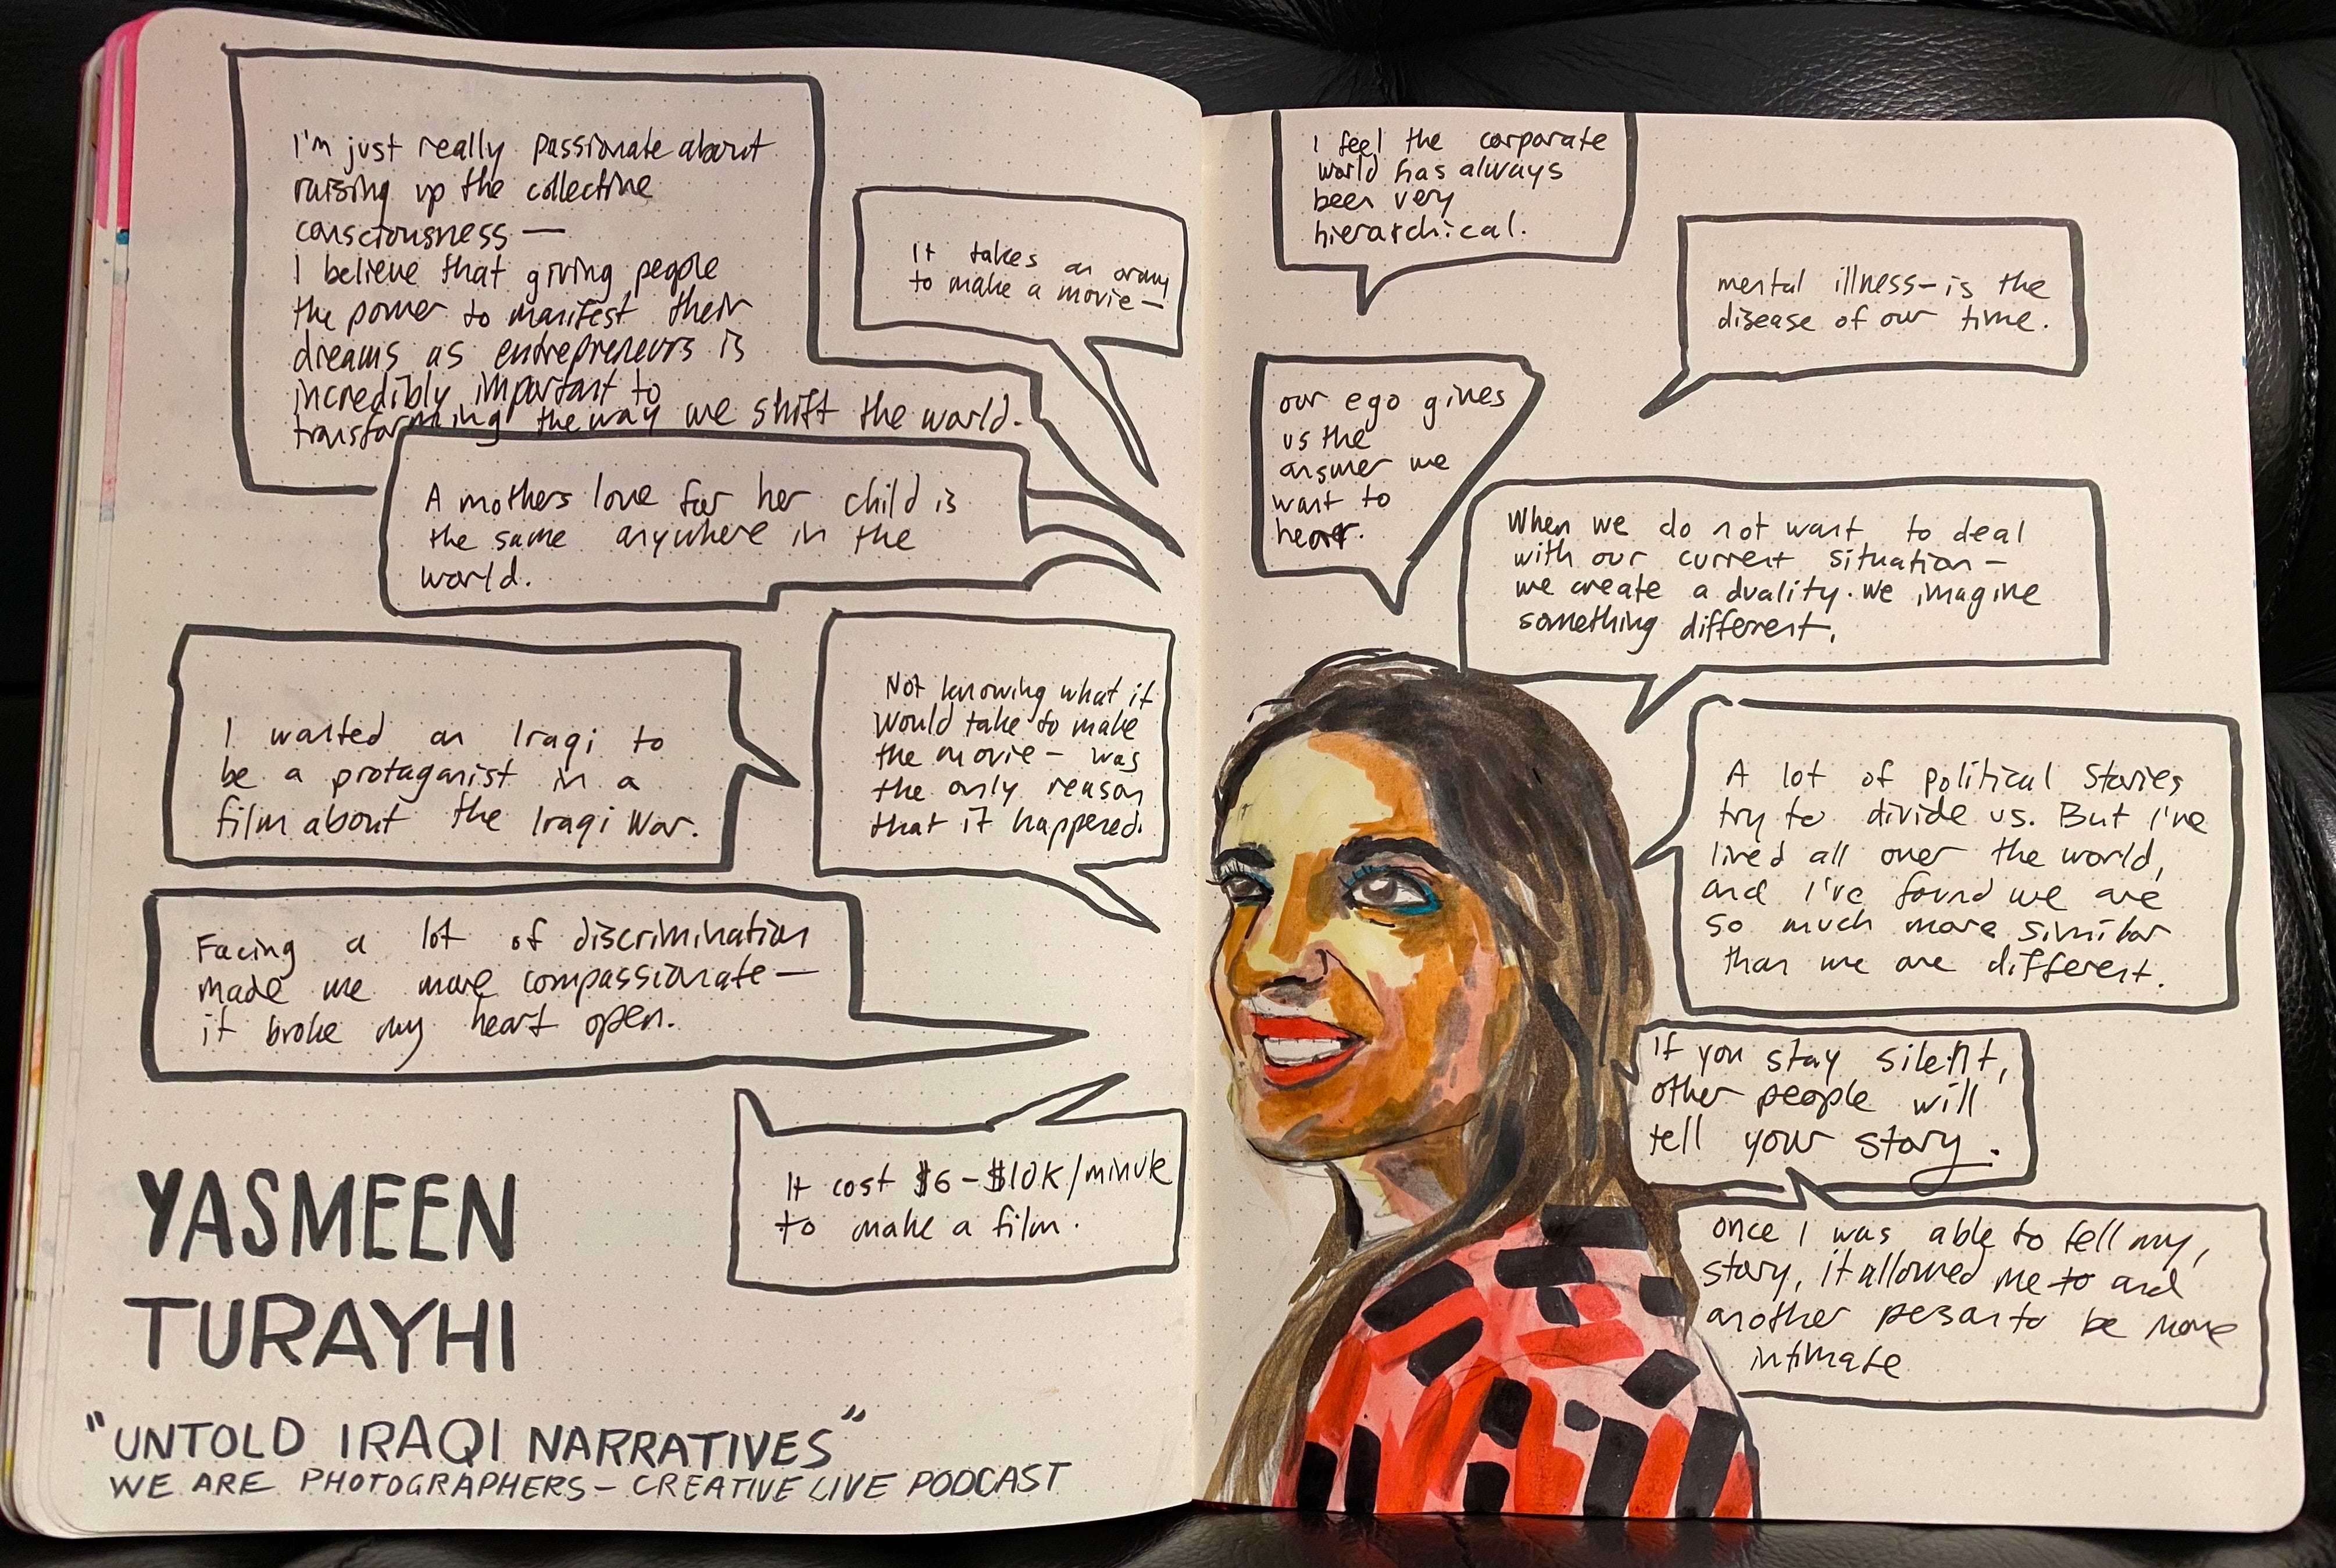 I'm just really passionate about
raising up the collective
consciousness —
I believe that giving people
the power to manifest their
dreams as entrepreneurs is
incredibly important to
transforming the way we shift the world.
It takes an army
to make a movie —
A mothers love for her child is
the same anywhere in the
world.
I wanted an Iraqi to
be a protaganist in a
film about the Iraqi War.
Not knowing what it
would take to make
the movie — was
the only reason
that it happened.
Facing a lot of discrimination
made me more compassionate —
it broke my heart open.
It cost $6 - $10K/minute
to make a film.
YASMEEN
TURAYHI
"UNTOLD IRAQI NARRATIVES"
WE ARE PHOTOGRAPHERS - CREATIVE LIVE PODCAST
I feel the corporate
world has always
been very
hierarchical.
mental illness - is the
disease of our time.
our ego gives
us the
answer we
want to
hear.
When we do not want to deal
with our current situation —
we create a duality. we imagine
something different.
A lot of political stories
try to divide us. But I've
lived all over the world,
and I've found we are
so much more similar
than we are different.
If you stay silent,
other people will
tell your story.
once I was able to tell my
story, it allowed me to and
another person to be more
intimate